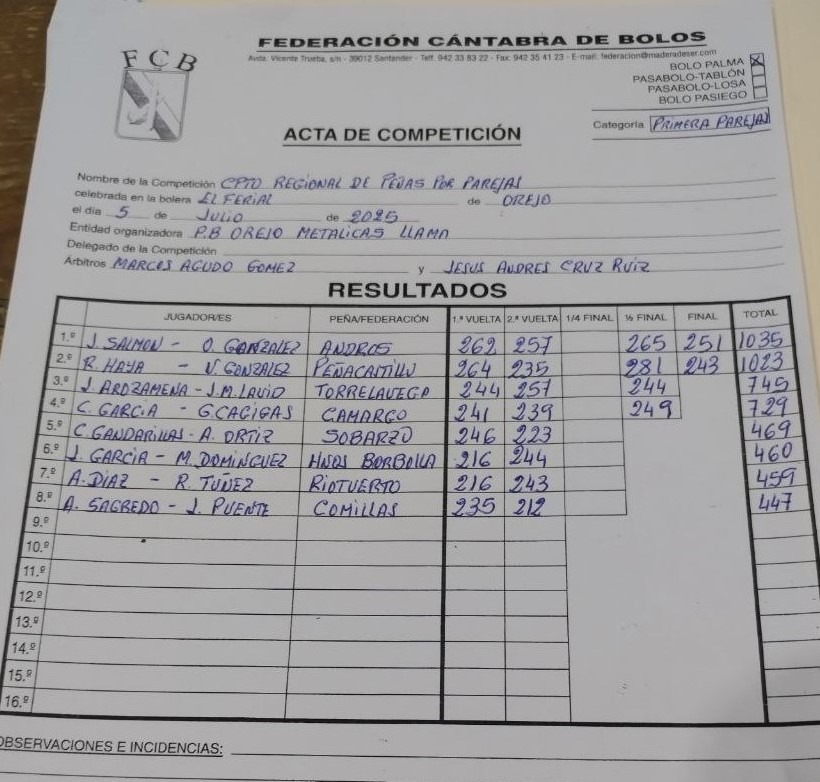 FCB
FEDERACIÓN CÁNTABRA DE BOLOS
Avda. Vicente Trueba, s/n - 39012 Santander - Telf. 942 33 83 22 - Fax: 942 35 41 23 - E-mail: federacion@maderadeser.com
BOLO PALMA X
PASABOLO-TABLÓN
PASABOLO-LOSA
BOLO PASIEGO
ACTA DE COMPETICIÓN
Categoría PRIMERA PAREJAS
Nombre de la Competición CPTO REGIONAL DE PEÑAS POR PAREJAS
celebrada en la bolera EL FERIAL de OREJO
el día 5 de JULIO de 2025
Entidad organizadora P.B OREJO METALICAS LLAMA
Delegado de la Competición
Árbitros MARCOS AGUDO GOMEZ y JESUS ANDRES CRUZ RUIZ
RESULTADOS
JUGADOR/ES PEÑA/FEDERACIÓN 1.ª VUELTA 2.ª VUELTA 1/4 FINAL ½ FINAL FINAL TOTAL
1.º J. SALMON - O. GONZALEZ ANDROS 262 257 265 251 1035
2.º R. HAYA - V. GONZALEZ PEÑACASTILLO 264 235 281 243 1023
3.º J. AROZAMENA - J.M. LAVID TORRELAVEGA 244 257 244 745
4.º C. GARCIA - G. CAGIGAS CAMARGO 241 239 249 729
5.º C. GANDARILLAS - A. ORTIZ SOBARZO 246 223 469
6.º J. GARCIA - M. DOMINGUEZ HNOS BORBOLLA 216 244 460
7.º A. DIAZ - R. TUÑEZ RIOTUERTO 216 243 459
8.º A. SAGREDO - J. PUENTE COMILLAS 235 212 447
9.º
10.º
11.º
12.º
13.º
14.º
15.º
16.º
OBSERVACIONES E INCIDENCIAS: